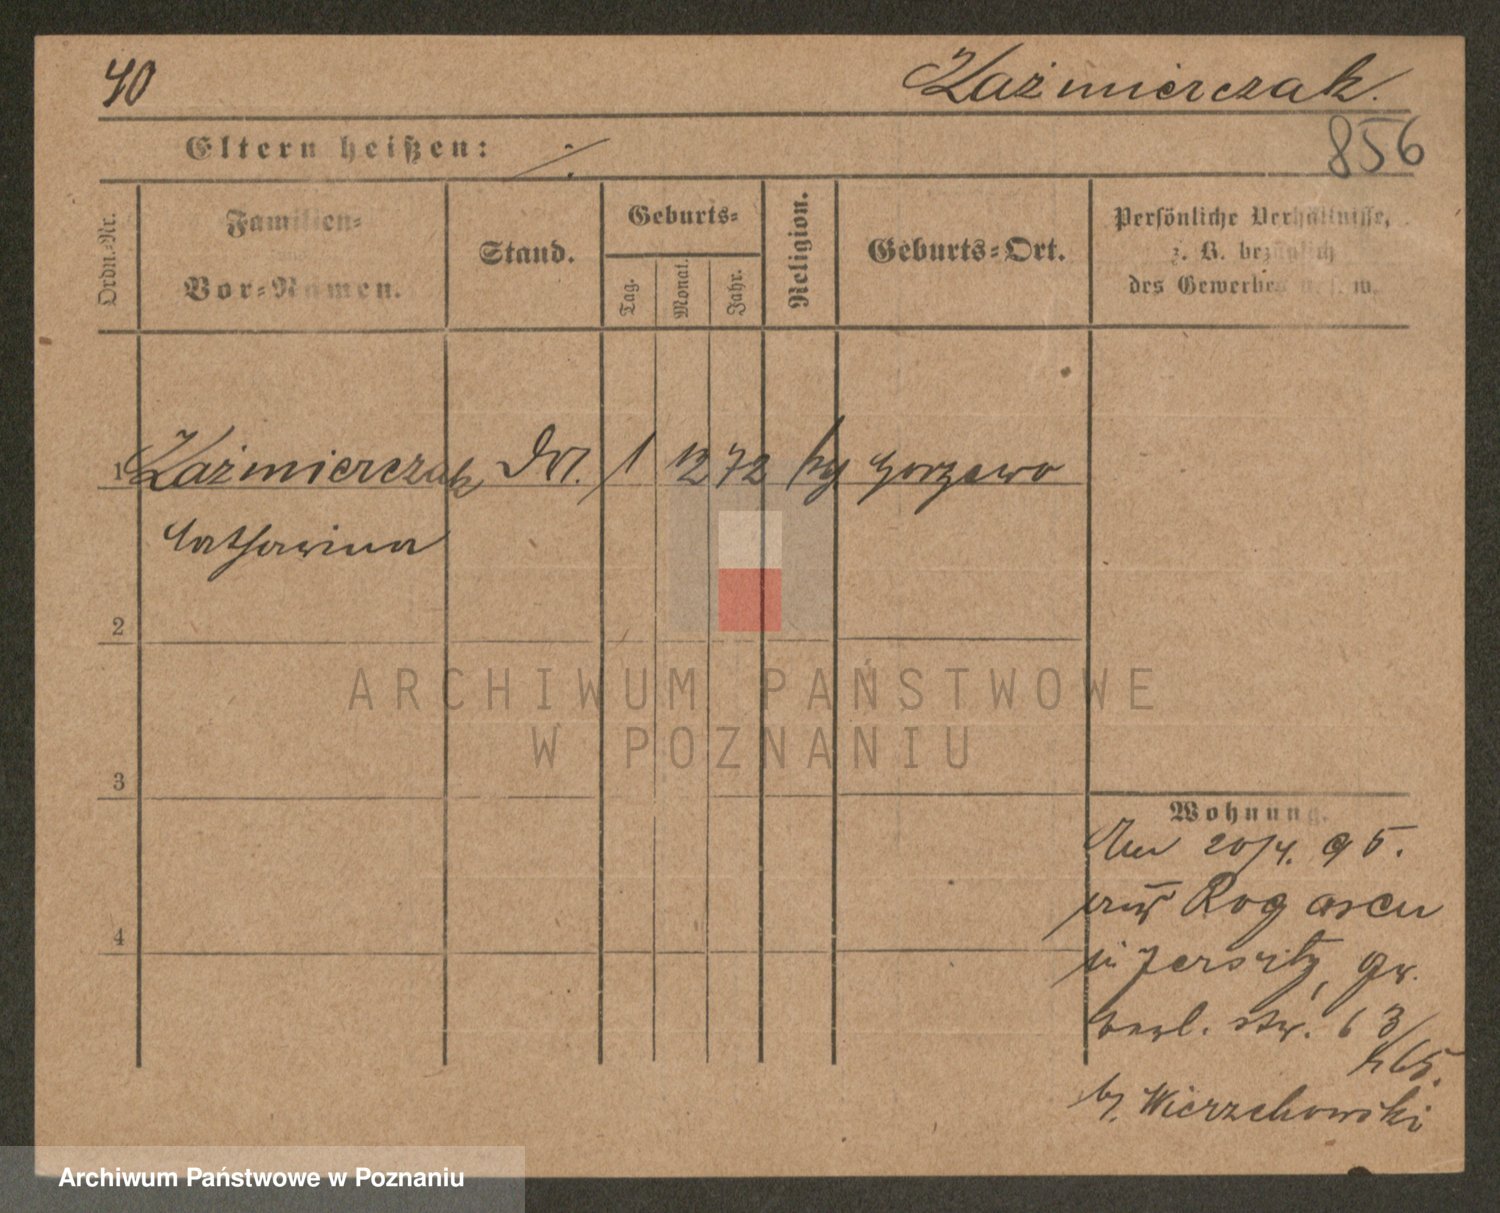 40 Kaźmierczak.
Eltern heißen: ./.
856
Ordn.-Nr.
Familien-
Vor-Namen.
Stand.
Geburts-
Tag. Monat. Jahr.
Religion.
Geburts-Ort.
Persönliche Verhältnisse,
z. B. bezüglich
des Gewerbes u. s. w.
1 Kaźmierczak 1 12 72 Gorzewo
Catharina
2
3
4
Wohnung.
20/4. 95.
Rogasen
in Jersitz, Gr.
berl. str. 63/
65.
b. Wierzchowski
ARCHIWUM PAŃSTWOWE
W POZNANIU
Archiwum Państwowe w Poznaniu